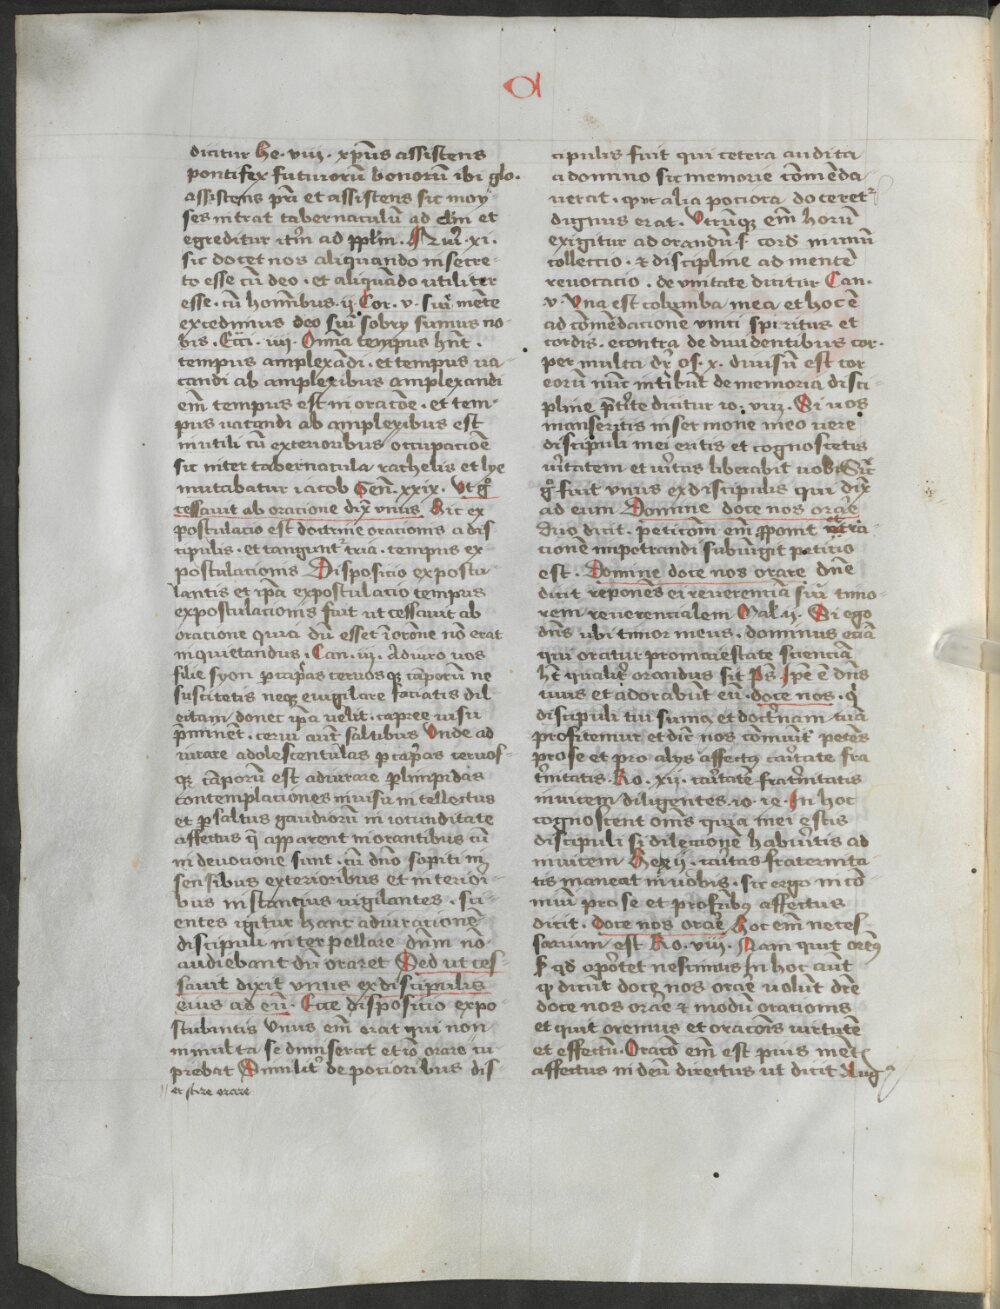 a
dicitur he. viij. xpūs assistens
pontifex futurorū bonorū ibi glo.
assistens pr̄i et assistens sic moy-
ses intrat tabernaculū ad dm̄ et
egreditur itm̄ ad pplm̄.
sic docet nos aliquando in secre-
to esse cū deo. et aliquādo utiliter
esse. cū hominibus. ij. Cor. v. siue mēte
excedimus deo siue sobrij sumus no-
bis. Ecc̄i. iij. Omīa tempus hn̄t.
tempus amplexādi. et tempus ua-
candi ab amplexibus amplexandi
em̄ tempus est in oracōe. et tem-
pus uacandi ab amplexibus est
in utili cū exterioribus occupacōe
sic inter tabernacula rachelis et lye
mutabatur iacob Gen̄. xxix. Ut gͦ
cessauit ab oratione dix̄ vnus. Hic ex
postulacio est doctrine oracionis a dis
cipulis. et tangunt̄ tria. tempus ex-
postulacionis Disposicio expostu-
lantis et ip̄a expostulacio tempus
expostulacionis fuit ut cessauit ab
oratione quia dū esset ī orōne nō erat
inquietandus. Can. iij. Adiuro uos
filie syon p capr̄as ceruosq; cāporū ne
suscitetis neq; euigilare faciatis dil
ectam donec ip̄a uelit. capree uisu
p̄minēt. cerui aūt saltibus Unde ad
iurare adolescentulas p cap̄as ceruos-
q; cāporū est adiurare p limpidas
contemplaciones in uisu intellectus
et p saltus gaudiorū in iocunditate
affectus q̄ apparent in orantibus cū
in deuocione sunt. cū dn̄o sopiti in
sensibus exterioribus et interiori-
bus instancius uigilantes. sci-
entes igitur hanc adiuracionē
discipuli interpellare dn̄m nō
audiebant dū oraret Sed ut ces-
sauit dixit vnus ex discipulis
eius ad eū. Ecce disposicio expo-
stulantis Unus em̄ erat qui non
in multa se dimiserat et iō orare cu
piebat Similit̄ de pocioribus dis-
et scire orare
cipulis fuit qui cetera audita
a domino sic memorie cōmēda-
uerat. qr̄ alia pociora doceret̄
dignus erat. Utrūq; em̄ horū
exigitur ad orandū s. cord̄ in unū
collectio. & discipline ad mentē
reuocacio. de vnitate dicitur Can.
v. Una est columba mea et hoc ē
ad cōmēdacionē vnici spiritus et
cordis. econtra de diuidentibus cor.
per multa dr̄ os. x. diuisū est cor
eorū nūc intībut de memoria disci-
pline p̄tīte dicitur io. viij. Si uos
manseritis in sermone meo uere
discipuli mei eritis et cognoscetis
uītatem et uītas liberabit uobis Sic
gͦ fuit vnus ex discipulis qui dix̄
ad eum Domine doce nos orāre
duo dicit. peticōm em̄ pponit et ra-
cionē impetrandi subiūgit peticio
est. Domine doce nos orare dn̄e
dicit reponēs ei reuerenciā siue timo-
rem reuerencialem Mal. ij. Si ego
dn̄s ubi timor meus. dominus eciā
qui oratur pro maiestate scienciā
h̄t qualit̄ orandus sit Ps. Ipē ē dn̄s
tuus et adorabūt eū. doce nos. q̄
discipuli tui sumus et doct̄nam tuā
profitemur et dic̄ nos cōmuit̄ petēs
pro se et pro alijs affectū caritate fra
t̄nitatis. Ro. xij. caritatē frat̄nitatis
inuicem diligentes. io. ie. In hoc
cognoscent om̄s quia mei estis
discipuli si dilectionē habuitis ad
inuicem Heb ij. caritas fraternita-
tis maneat in uobis. sic ergo in cō-
muni pro se et pro frībȝ affectus
dicit. doce nos orāre hoc em̄ neces-
sarium est Ro. viij. Nam quit orēȝ
s. qd̄ oportet nescimus In hoc aūt
q dicūt doce nos orāre uolūt dicē
doce nos orāre & modū oracionis
et quit oremus et oracōis uirtutē
et effectū. Oracō em̄ est pius mētȝ
affectus in deū directus ut dicit Aug